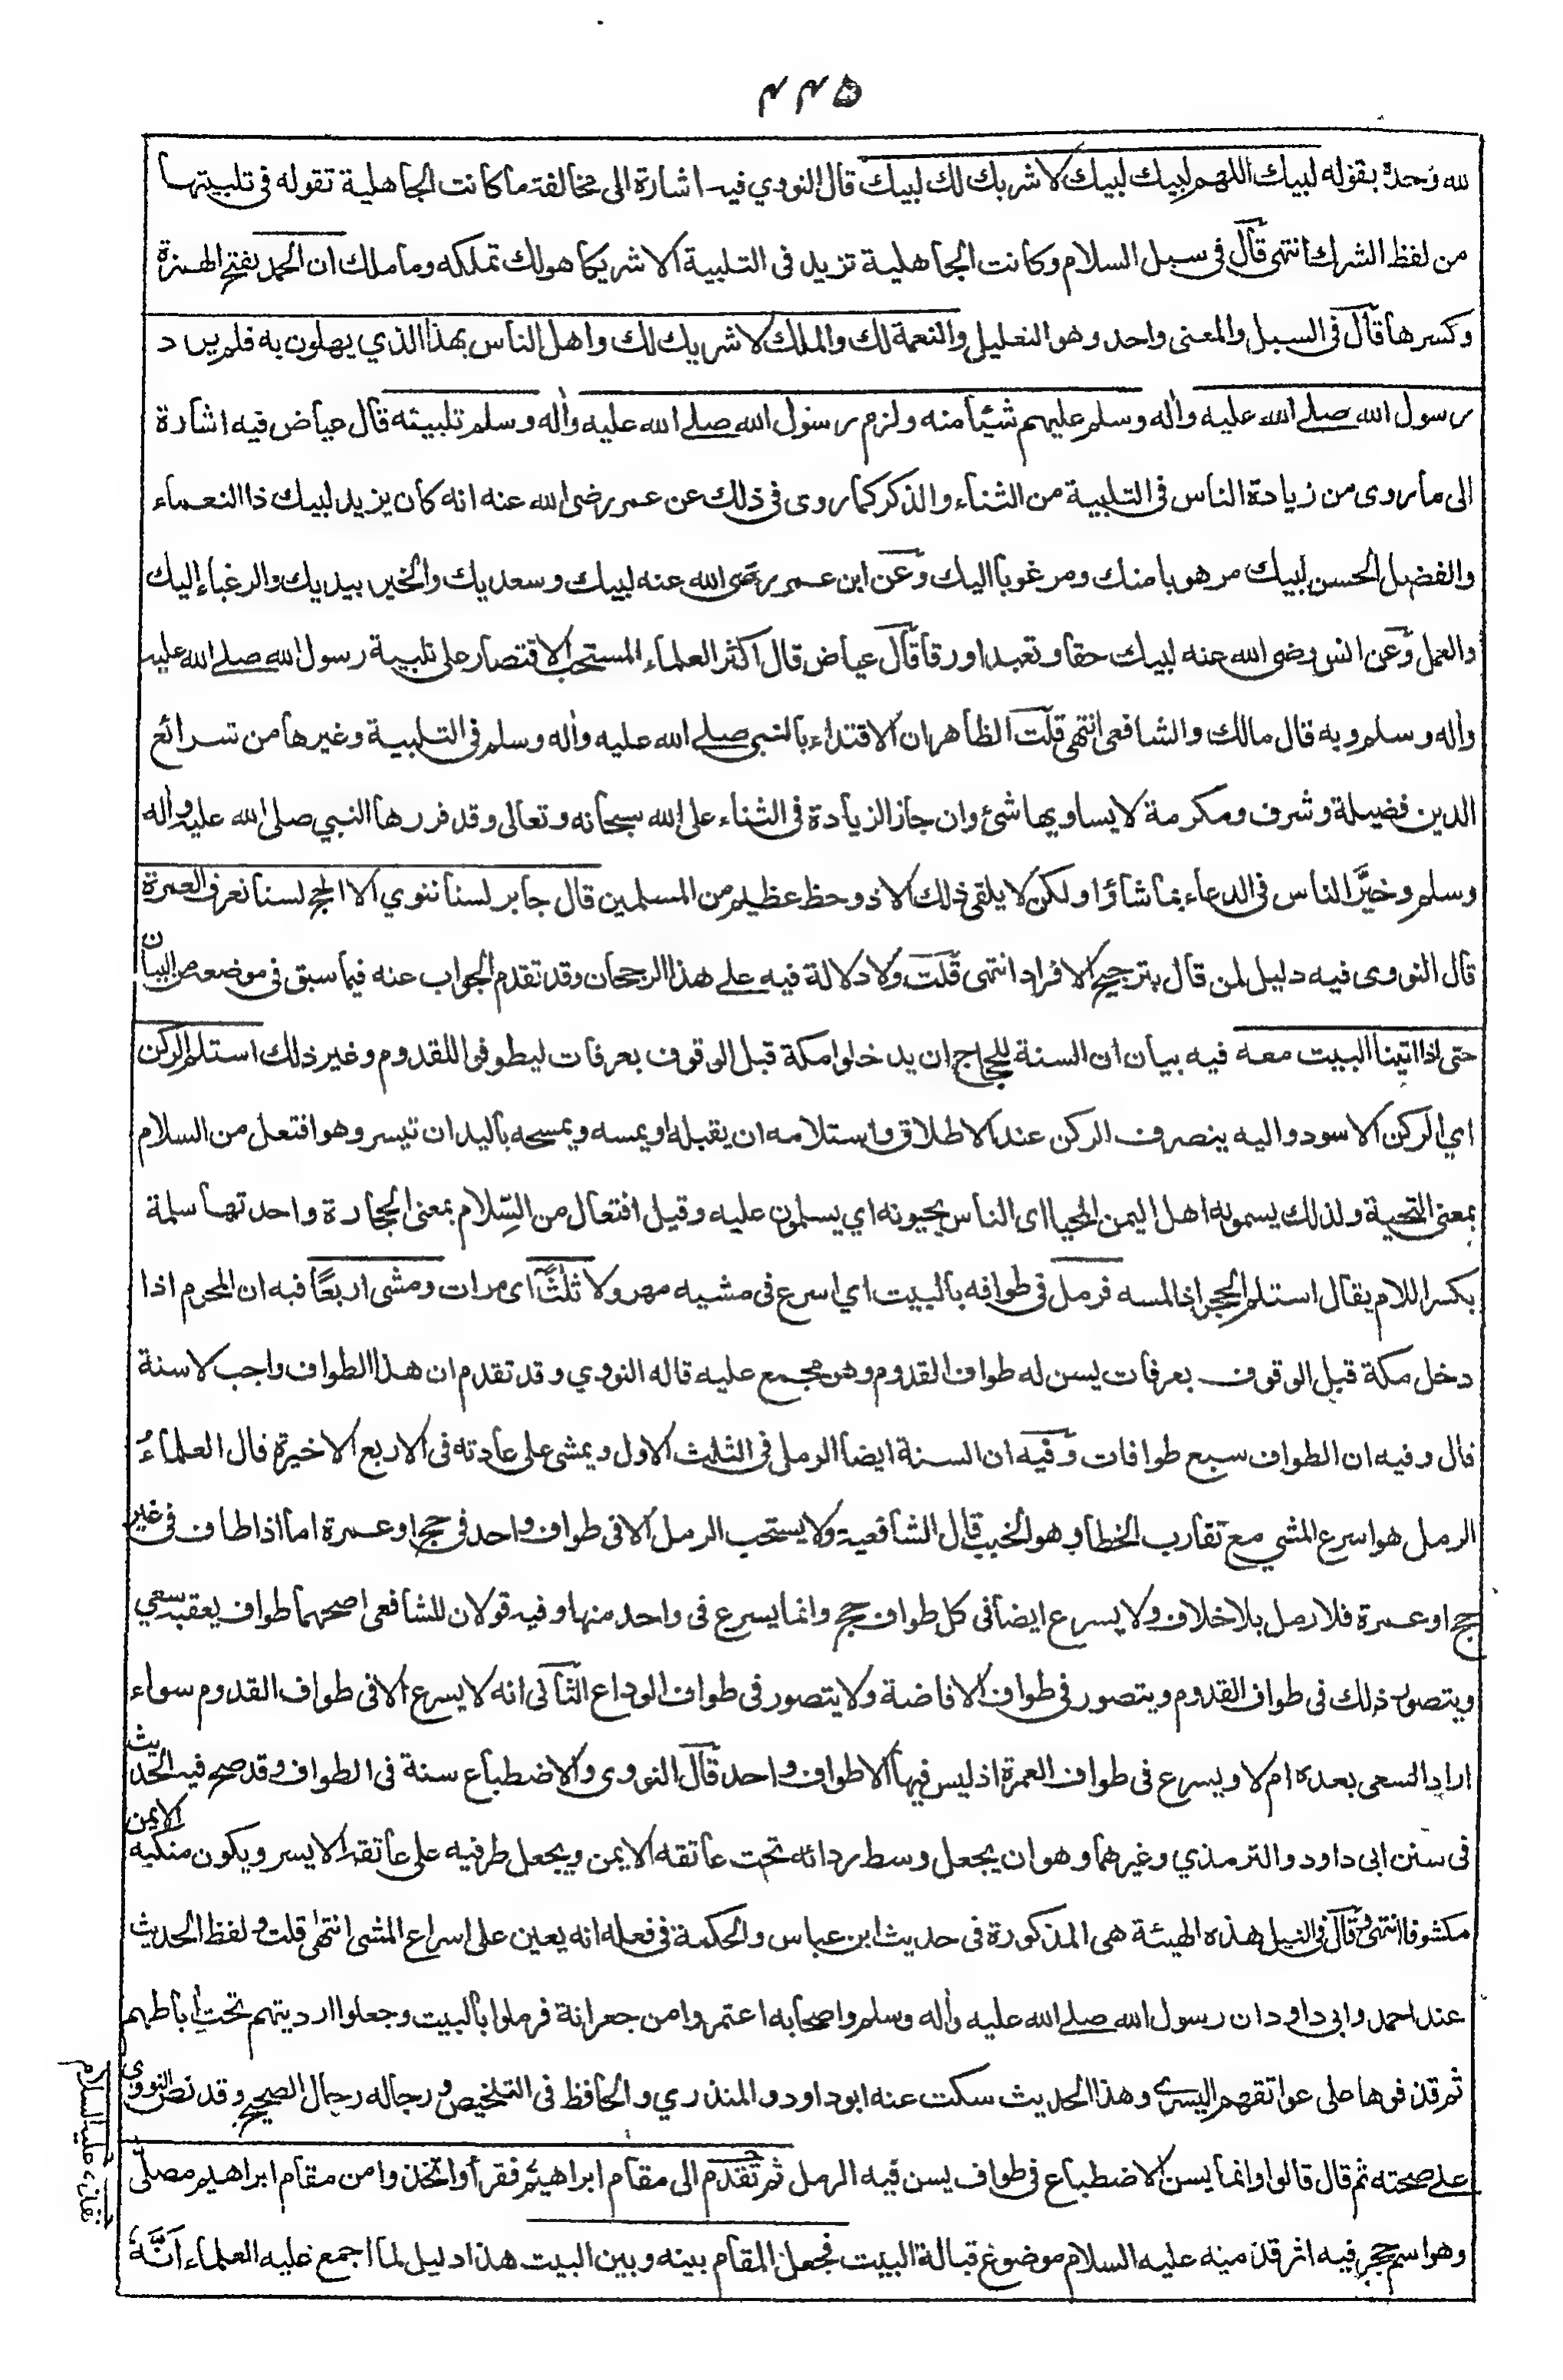 ۴۴۵
لله وحدة بقوله لبيك اللهم لبيك لبيك لا شريك لك لبيك قال النووي فيه اشارة الى مخالفة ما كانت الجاهلية تقوله فى تلبيتها
من لفظ الشرك انتهى قال فى سبل السلام وكانت الجاهلية تزيد فى التلبية الا شريكا هو لك تملكه وما ملك ان الحمد بفتح الهمزة
وكسرها قال فى السبل والمعنى واحد وهو التعليل والنعمة لك والملك لا شريك لك واهل الناس بهذا الذي يهلون به فلم يرد
رسول الله صلے الله عليه واٰله وسلم عليهم شيئا منه ولزم رسول الله صلے الله عليه واٰله وسلم تلبيته قال عياض فيه اشارة
الى ما روى من زيادة الناس فى التلبية من الثناء والذكر كما روى فى ذلك عن عمر رضى الله عنه انه كان يزيد لبيك ذا النعماء
والفضل الحسن لبيك مرهوبا منك ومرغوبا اليك وعن ابن عمر رضى الله عنه لبيك وسعديك والخير بيديك والرغباء إليك
والعمل وعن انس رضى الله عنه لبيك حقا وتعبدا ورقا قال عياض قال اكثر العلماء المستحب الاقتصار على تلبية رسول الله صلے الله عليه
واٰله وسلم وبه قال مالك والشافعى انتهى قلت الظاهر ان الاقتداء بالنبى صلے الله عليه واٰله وسلم فى التلبية وغيرها من شرائع
الدين فضيلة وشرف ومكرمة لا يساويها شئ وان جاز الزيادة فى الثناء على الله سبحانه وتعالى وقد قررها النبي صلى الله عليه واٰله
وسلم وخيَّر الناس فى الدعاء بما شاؤا ولكن لا يلقى ذلك الا ذو حظ عظيم من المسلمين قال جابر لسنا ننوي الا الحج لسنا نعرف العمرة
قال النووى فيه دليل لمن قال بترجيح الافراد انتهى قلت ولا دلالة فيه علے هذا الرجحان وقد تقدم الجواب عنه فيما سبق فى موضعه من البيان
حتى اذا اتينا البيت معه فيه بيان ان السنة للحجاج ان يدخلوا مكة قبل الوقوف بعرفات ليطوفوا للقدوم وغير ذلك استلم الركن
اي الركن الاسود واليه ينصرف الركن عند الاطلاق واستلامه ان يقبله او يمسه ويمسحه باليد ان تيسر وهو افتعل من السلام
بمعنى التحية ولذلك يسمونه اهل اليمن المحيا اى الناس يحيونه اي يسلمون عليه وقيل افتعال من السِّلام بمعنى الحجارة واحدتها سلمة
بكسر اللام يقال استلم الحجر اذا لمسه فرمل فى طوافه بالبيت اي اسرع فى مشيه مهرولا ثلثًا اى مرات ومشى اربعًا فيه ان المحرم اذا
دخل مكة قبل الوقوف بعرفات يسن له طواف القدوم وهو مجمع عليه قاله النووي وقد تقدم ان هذا الطواف واجب لا سنة
قال وفيه ان الطواف سبع طوافات وفيه ان السنة ايضا الرمل فى الثلث الاول ويمشى على عادته فى الاربع الاخيرة قال العلماءُ
الرمل هو اسرع المشي مع تقارب الخطا وهو الخبب قال الشافعية ولا يستحب الرمل الا فى طواف واحد فى حج او عمرة اما اذا طاف فى غير
حج او عمرة فلا رمل بلا خلاف ولا يسرع ايضا فى كل طواف حج وانما يسرع فى واحد منها وفيه قولان للشافعى اصحهما طواف يعقبه سعي
ويتصور ذلك فى طواف القدوم ويتصور فى طواف الافاضة ولا يتصور فى طواف الوداع الثانى انه لا يسرع الا فى طواف القدوم سواء
اراد السعى بعده ام لا ويسرع فى طواف العمرة اذ ليس فيها الا طواف واحد قال النووى والاضطباع سنة فى الطواف وقد صح فيه الحديث
فى سنن ابى داود والترمذي وغيرهما وهو ان يجعل وسط ردائه تحت عاتقه الايمن ويجعل طرفيه على عاتقه الايسر ويكون منكبه الايمن
مكشوفا انتهى قال فى النيل هذه الهيئة هى المذكورة فى حديث ابن عباس والحكمة فى فعله انه يعين على اسراع المشى انتهٰى قلت ولفظ الحديث
عند احمد وابى داود ان رسول الله صلے الله عليه واٰله وسلم واصحابه اعتمروا من جعرانة فرملوا بالبيت وجعلوا ارديتهم تحت أباطهم
ثم قذفوها على عواتقهم اليسرى وهذا الحديث سكت عنه ابو داود والمنذري والحافظ فى التلخيص ورجاله رجال الصحيح وقد نص النووى
علے صحته ثم قال قالوا وانما يسن الاضطباع فى طواف يسن فيه الرمل ثم تقدم الى مقام ابراهيم فقرأ واتخذوا من مقام ابراهيم مصلّى
وهو اسم حجر فيه اثر قدميه عليه السلام موضوع قبالة البيت فجعل المقام بينه وبين البيت هذا دليل لما اجمع عليه العلماء انَّهُ
عليه السلام